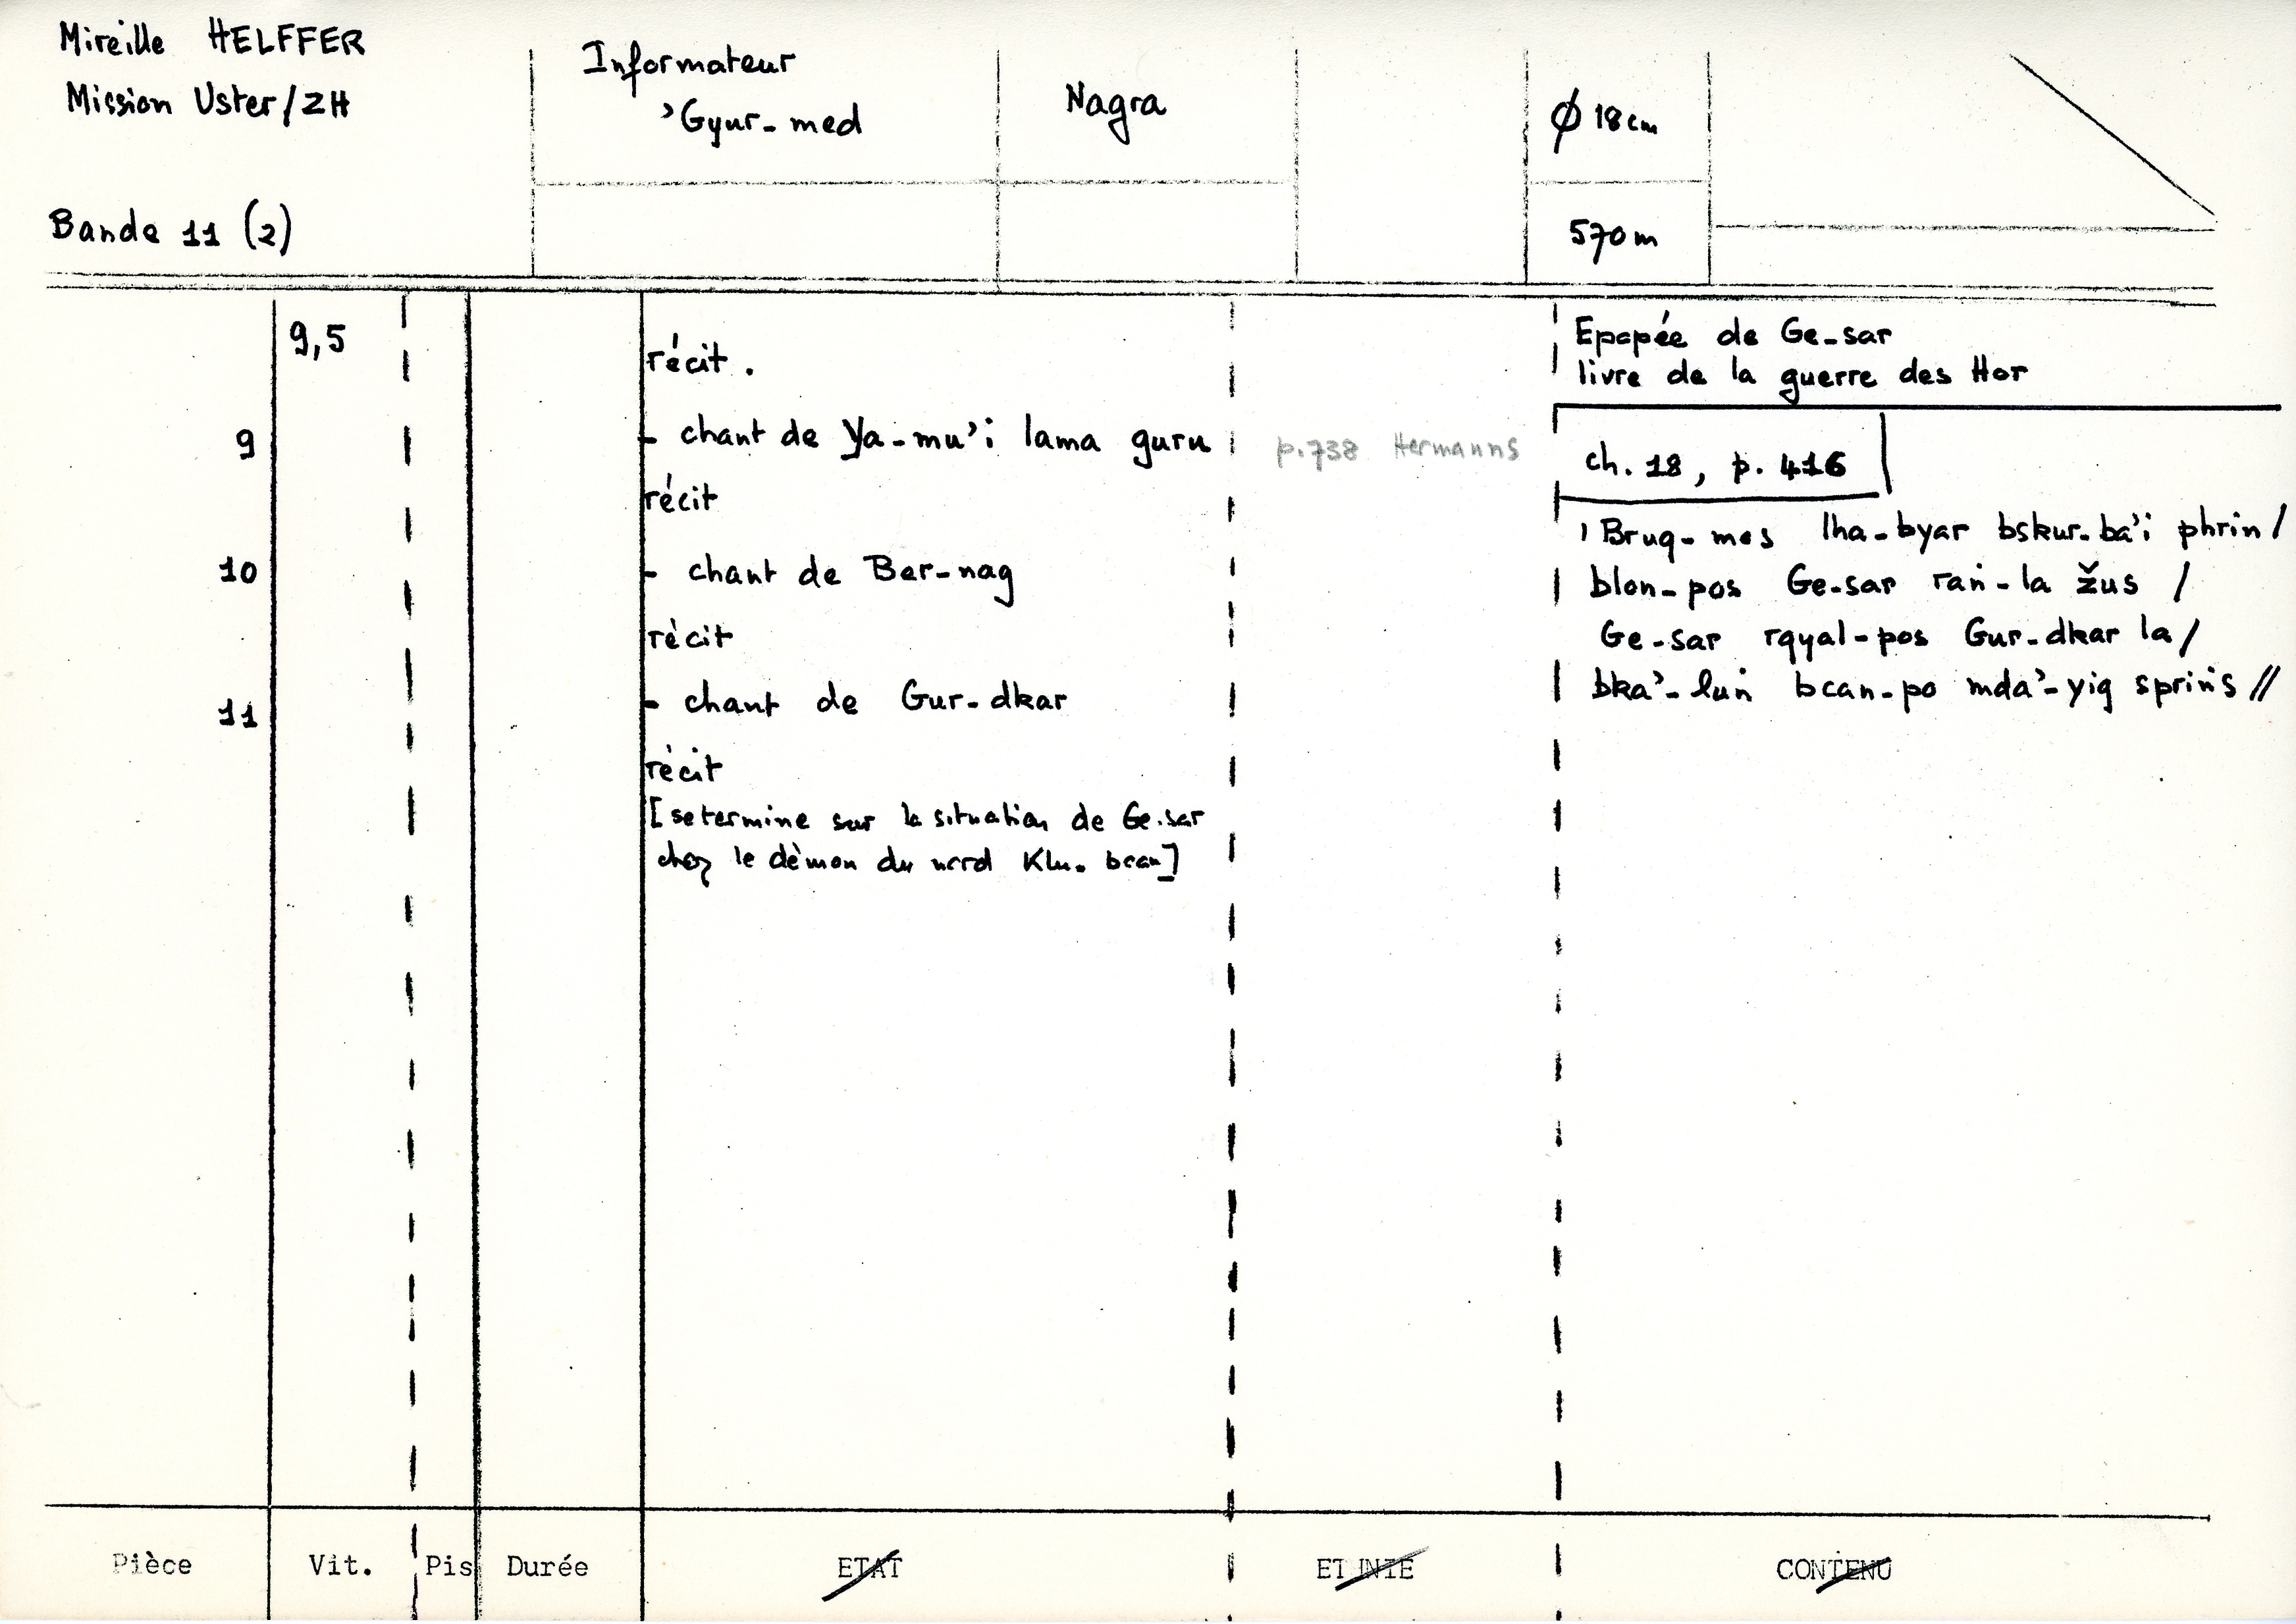 Mireille HELFFER
Mission Uster/ZH
Bande 11 (2)
Informateur
'Gyur-med
Nagra
Ø 18cm
570m
9,5
récit.
9
- chant de Ya-mu'i lama guru
récit
10
- chant de Ber-nag
récit
11
- chant de Gur-dkar
récit
[se termine sur la situation de Ge-sar
chez le démon du nord Klu-bcan]
p.738 Hermanns
Epopée de Ge-sar
livre de la guerre des Hor
ch. 18, p. 416
'Brug-mos lha-byar bskur-ba'i phrin /
blon-pos Ge-sar raṅ-la žus /
Ge-sar rgyal-pos Gur-dkar la /
bka'-luṅ bcan-po mda'-yig spriṅs //
Pièce
Vit.
Pis
Durée
ETAT
ETHNIE
CONTENU